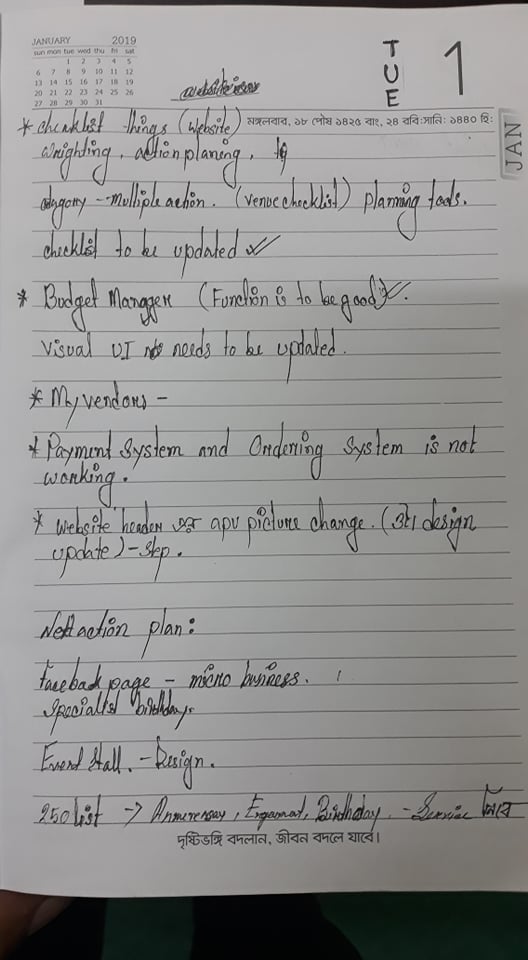 JANUARY 2019
sun mon tue wed thu fri sat
1 2 3 4 5
6 7 8 9 10 11 12
13 14 15 16 17 18 19
20 21 22 23 24 25 26
27 28 29 30 31
TUE 1
JAN
মঙ্গলবার, ১৮ পৌষ ১৪২৫ বাং, ২৪ রবি:সানি: ১৪৪০ হি:
* checklist things (website)
wrighting, action planing,
- multiple action. (venue checklist) planning tools.
checklist to be updated ✓
* Budget Manager (Function is to be good) ✓.
visual UI needs to be updated.
* My vendors -
* Payment System and Ordering System is not
working.
* website header এর picture change. (design
update) - step.
action plan:
page - micro business.
specialist birthday.
Event Stall. - Design.
250 list -> Birthday. - Service
দৃষ্টিভঙ্গি বদলান, জীবন বদলে যাবে।